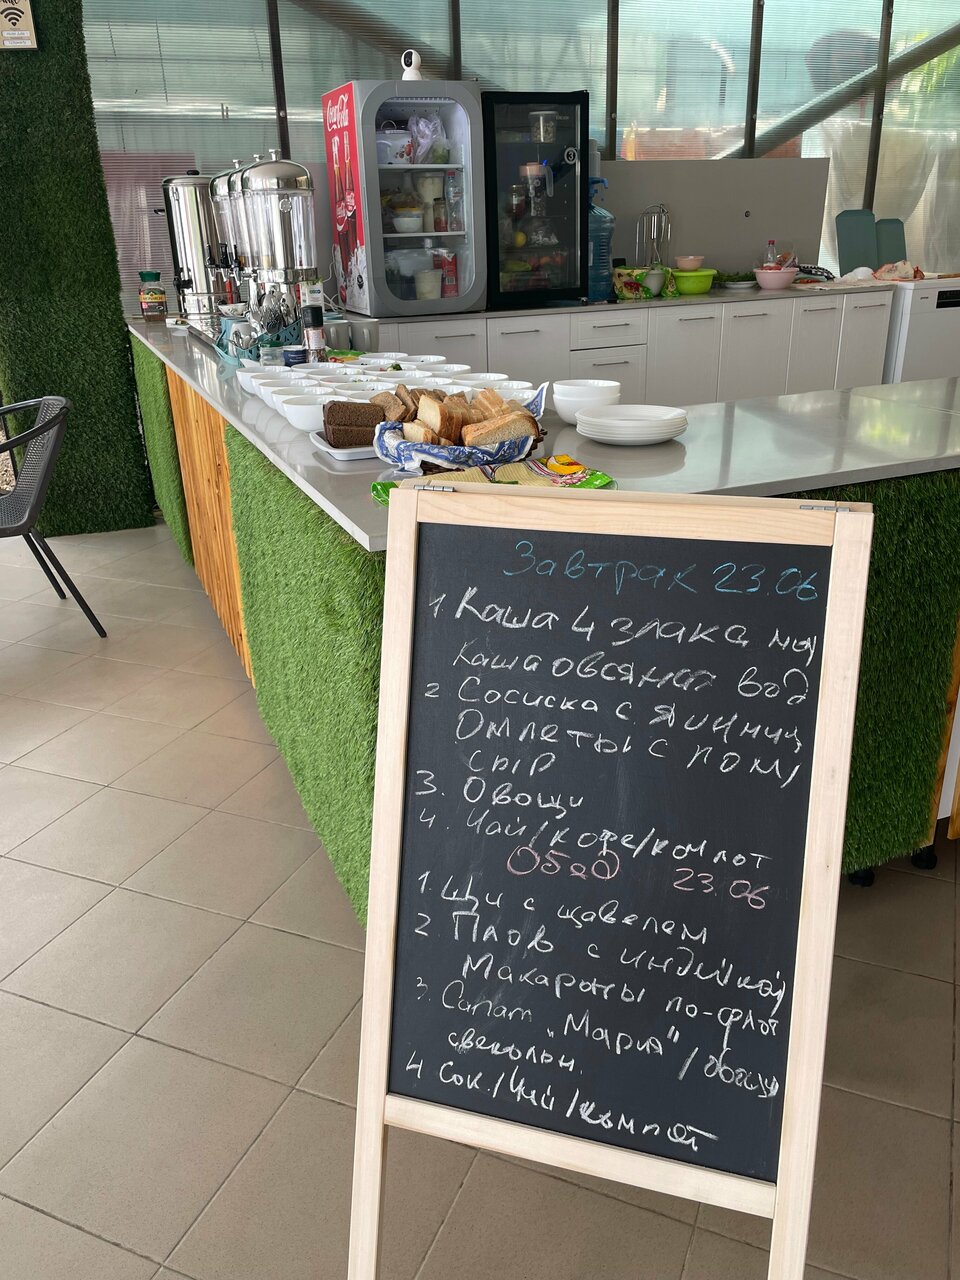 Coca-Cola
Завтрак 23.06
1 Каша 4 злака мол
Каша овсяная вод
2 Сосиска с яичниц
Омлеты с пом/
сыр
3. Овощи
4. Чай/кофе/компот
Обед 23.06
1. Щи с щавелем
2. Плов с индейкой/
Макароны по-флот
3. Салат "Мария" / овощи
свекольн.
4 Сок./Чай/компот